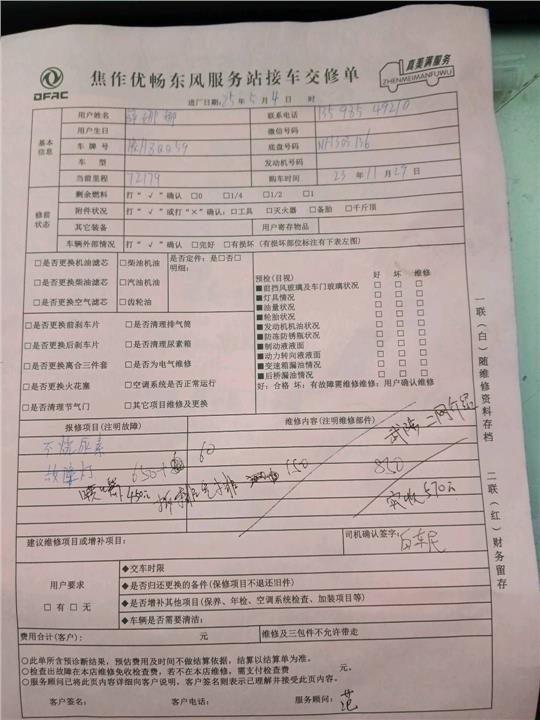 DFAC
焦作优畅东风服务站接车交修单
真美满服务
ZHENMEIMANFUWU
进厂日期:25年5月4日 时
基本信息
用户姓名 联系电话
用户生日 微信号码
车牌号 底盘号码
车型 发动机号码
当前里程 72179 购车时间 23年11月29日
修前状态
剩余燃料 打“√”确认 □0 □1/4 □1/2 □1
附件状况 打“√”或打“×”确认:□工具 □灭火器 □备胎 □千斤顶
其它装备 用户寄存物品
车辆外部情况 打“√”确认 □完好 □有损坏(有损坏部位标注有下表左图)
□是否更换机油滤芯 □柴油机油 是否定件:是□否□
□是否更换柴油滤芯 □汽油机油 明细:
□是否更换空气滤芯 □齿轮油
□是否更换前刹车片 □是否清理排气筒
□是否更换后刹车片 □是否清理尿素箱
□是否更换离合三件套 □是否为电气维修
□是否更换火花塞 □空调系统是否正常运行
□是否清理节气门 □其它项目维修及更换
预检(目视) 好 坏 维修
■前挡风玻璃及车门玻璃状况 □ □ □
■灯具情况 □ □ □
■油量状况 □ □ □
■轮胎状况 □ □ □
■发动机机油状况 □ □ □
■防冻防锈液状况 □ □ □
■制动液液面 □ □ □
■动力转向液液面 □ □ □
■变速箱漏油情况 □ □ □
■后桥漏油情况 □ □ □
好:合格 坏:有故障需维修维修:用户确认维修
报修项目(注明故障) 维修内容(注明维修部件)
不烧尿素
故障灯
60
喷嘴 450元
150
830
实收570元
建议维修项目或增补项目:
司机确认签字:
用户要求
□有□无
◆交车时限
◆是否归还更换的备件(保修项目不退还旧件)
◆是否增补其他项目(保养、年检、空调系统检查、加装项目等)
◆车辆是否需要清洁:
费用合计(客户): 元 维修及三包件不允许带走
○此单所含预诊断结果,预估费用及时间不做结算依据,结算以结算单为准。
○检查出故障在本店维修免收检查费,若不在本店维修,需支付检查费 元。
○服务顾问已将此页内容详细向客户说明,客户签名则表示已理解并接受此页内容。
客户签名: 客户电话: 服务顾问:范
一联(白)随维修资料存档
二联(红)财务留存